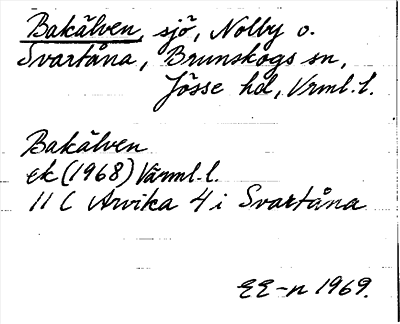 Bakälven, sjö, Nolby o.
Svartåna, Brunskogs sn,
Jösse hd, Vrml. l.
Bakälven
ek (1968) Värml. l.
11 C Arvika 4 i Svartåna
EE-n 1969.